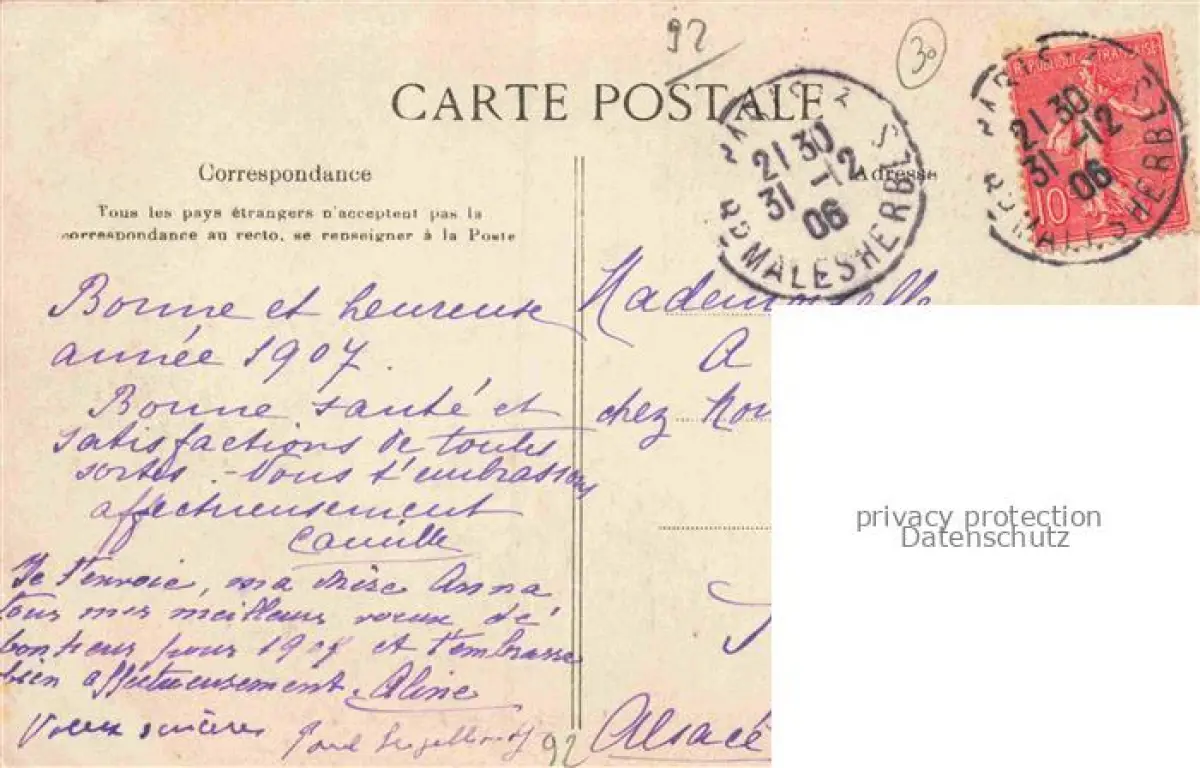 92
30
CARTE POSTALE
Correspondance
Tous les pays étrangers n'acceptent pas la
correspondance au recto, se renseigner à la Poste
Bonne et heureuse
année 1907.
Bonne santé et
satisfactions de toutes
sortes. - Vous t'embrassons
affectueusement
Camille
Je t'envoie, ma chère Anna
tous mes meilleurs voeux de
bonheur pour 1907 et t'embrasse
bien affectueusement. Aline
Voeux sincères Paul
92
PARIS
21 30
31 -12
06
BD MALESHERBES
Adresse
REPUBLIQUE FRANÇAISE
10
PARIS
21 30
31 -12
06
BD MALESHERBES
Mademoiselle
A
chez
Alsace
privacy protection
Datenschutz